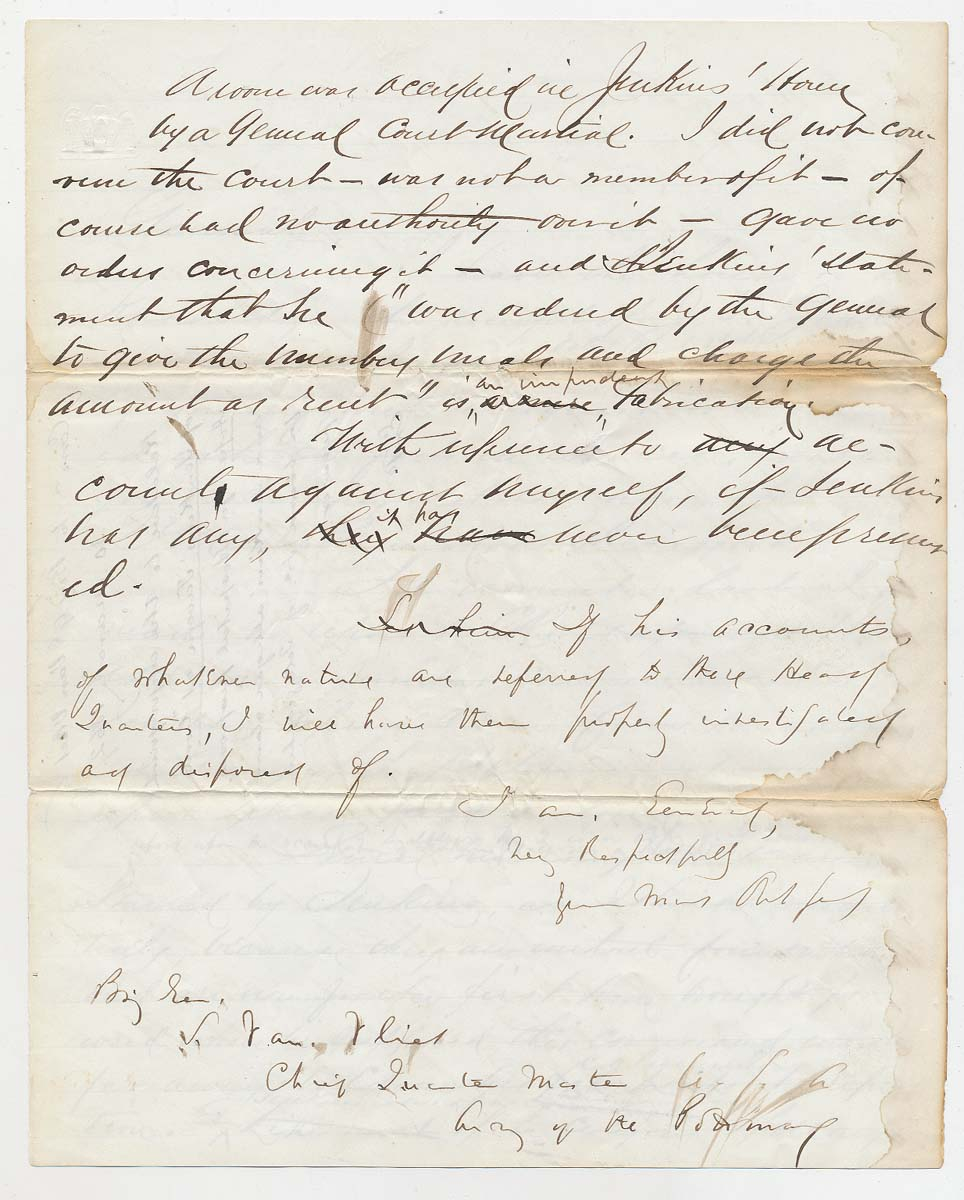 A room was occupied in Jenkins' House
by a General Court Martial. I did not con-
vene the court – was not a member of it – of
course had no authority over it – gave no
orders concerning it – and Jenkins' state-
ment that he "was ordered by the General
to give the number meals and charge the
amount as rent" is a mere an impudent fabrication.
With reference to any ac-
counts against myself, if Jenkins
has any, they it has have never been present-
ed.
to him If his accounts,
of whatever nature are referred to these Head
Quarters, I will have them properly investigated
and disposed of.
I am, General,
Very Respectfully
Your Most Obt Svt
Brig Gen.
S. Van Vliet
Chief Quarter Master U. S. A
Army of the Potomac